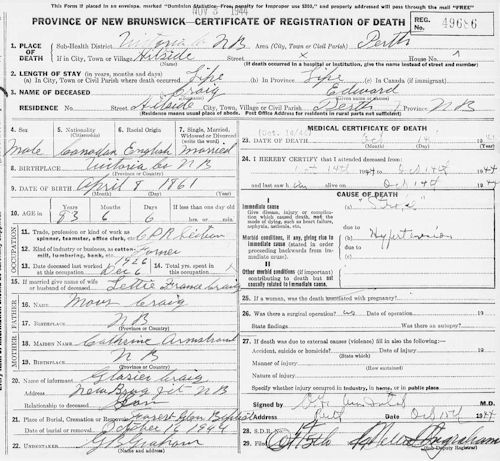 This Form if placed in an envelope, marked "Dominion Statistics—Free (penalty for improper use $300), and properly addressed will pass through the mail "FREE"
NOV 3 1944
PROVINCE OF NEW BRUNSWICK—CERTIFICATE OF REGISTRATION OF DEATH
REG. NO. 49686
1. PLACE OF DEATH
Sub-Health District Victoria Co NB Area (City, Town or Civil Parish) Perth
If in City, Town or Village Hillside Street x House No.
(If death occurred in a hospital or institution, give the name instead of street and number)
2. LENGTH OF STAY (in years, months and days)
(a) In City, Town or Civil Parish where death occurred Life (b) In Province Life (c) In Canada (if immigrant)
3. NAME OF DECEASED Craig Edward
RESIDENCE No. Street Hillside City, Town, Village or Civil Parish Perth Province NB
(Residence means usual place of abode. Post Office Address for residents in rural parts not sufficient)
4. Sex Male
5. Nationality (Citizenship) Canadian
6. Racial Origin English
7. Single, Married, Widowed or Divorced (write the word) Married
8. BIRTHPLACE Victoria Co NB
(Province or Country)
9. DATE OF BIRTH April 8 1861
(Month) (Day) (Year)
10. AGE in 83 6 6 If less than one day old
hrs. or min.
11. Trade, profession or kind of work as spinner, teamster, office clerk, etc. CPR Section
12. Kind of industry or business, as cotton-mill, lumbering, bank, etc. Foreman
13. Date deceased last worked at this occupation 1926
14. Total yrs. spent in this occupation
15. If married give name of wife or husband of deceased Lettie Craig
16. NAME Craig
17. BIRTHPLACE NB
(Province or Country)
18. MAIDEN NAME Catherine Armstrong
19. BIRTHPLACE NB
(Province or Country)
20. Name of informant Glazier Craig
Address NB
Relationship to deceased Son
21. Place of Burial, Cremation or Removal Baptist
Date of burial or removal October 16 1944
22. UNDERTAKER G B Graham
(Name and address)
MEDICAL CERTIFICATE OF DEATH
23. DATE OF DEATH Oct 14
24. I HEREBY CERTIFY that I attended deceased from:
Oct 14th 1944
and last saw h alive on Oct 14th 1944
CAUSE OF DEATH
I
Immediate cause
Give disease, injury or complication which caused death, not the mode of dying, such as heart failure, asphyxia, asthenia, etc.
(a)
due to
Morbid conditions, if any, giving rise to immediate cause (stated in order proceeding backwards from immediate cause).
(b) Hypertension
due to
(c)
II
Other morbid conditions (if important) contributing to death but not causally related to immediate cause.
25. If a woman, was the death associated with pregnancy?
26. Was there a surgical operation? no Date of operation 19
State findings Was there an autopsy?
27. If death was due to external causes (violence) fill in also the following:
Accident, suicide or homicide? Date of injury 19
(State which)
Manner of injury
Nature of injury
Specify whether injury occurred in industry, in home, or in public place
Signed by M.D.
Perth Date Oct 15th 1944
28. S.D.R. No.
29. Filed
(Sub-Deputy Registrar)